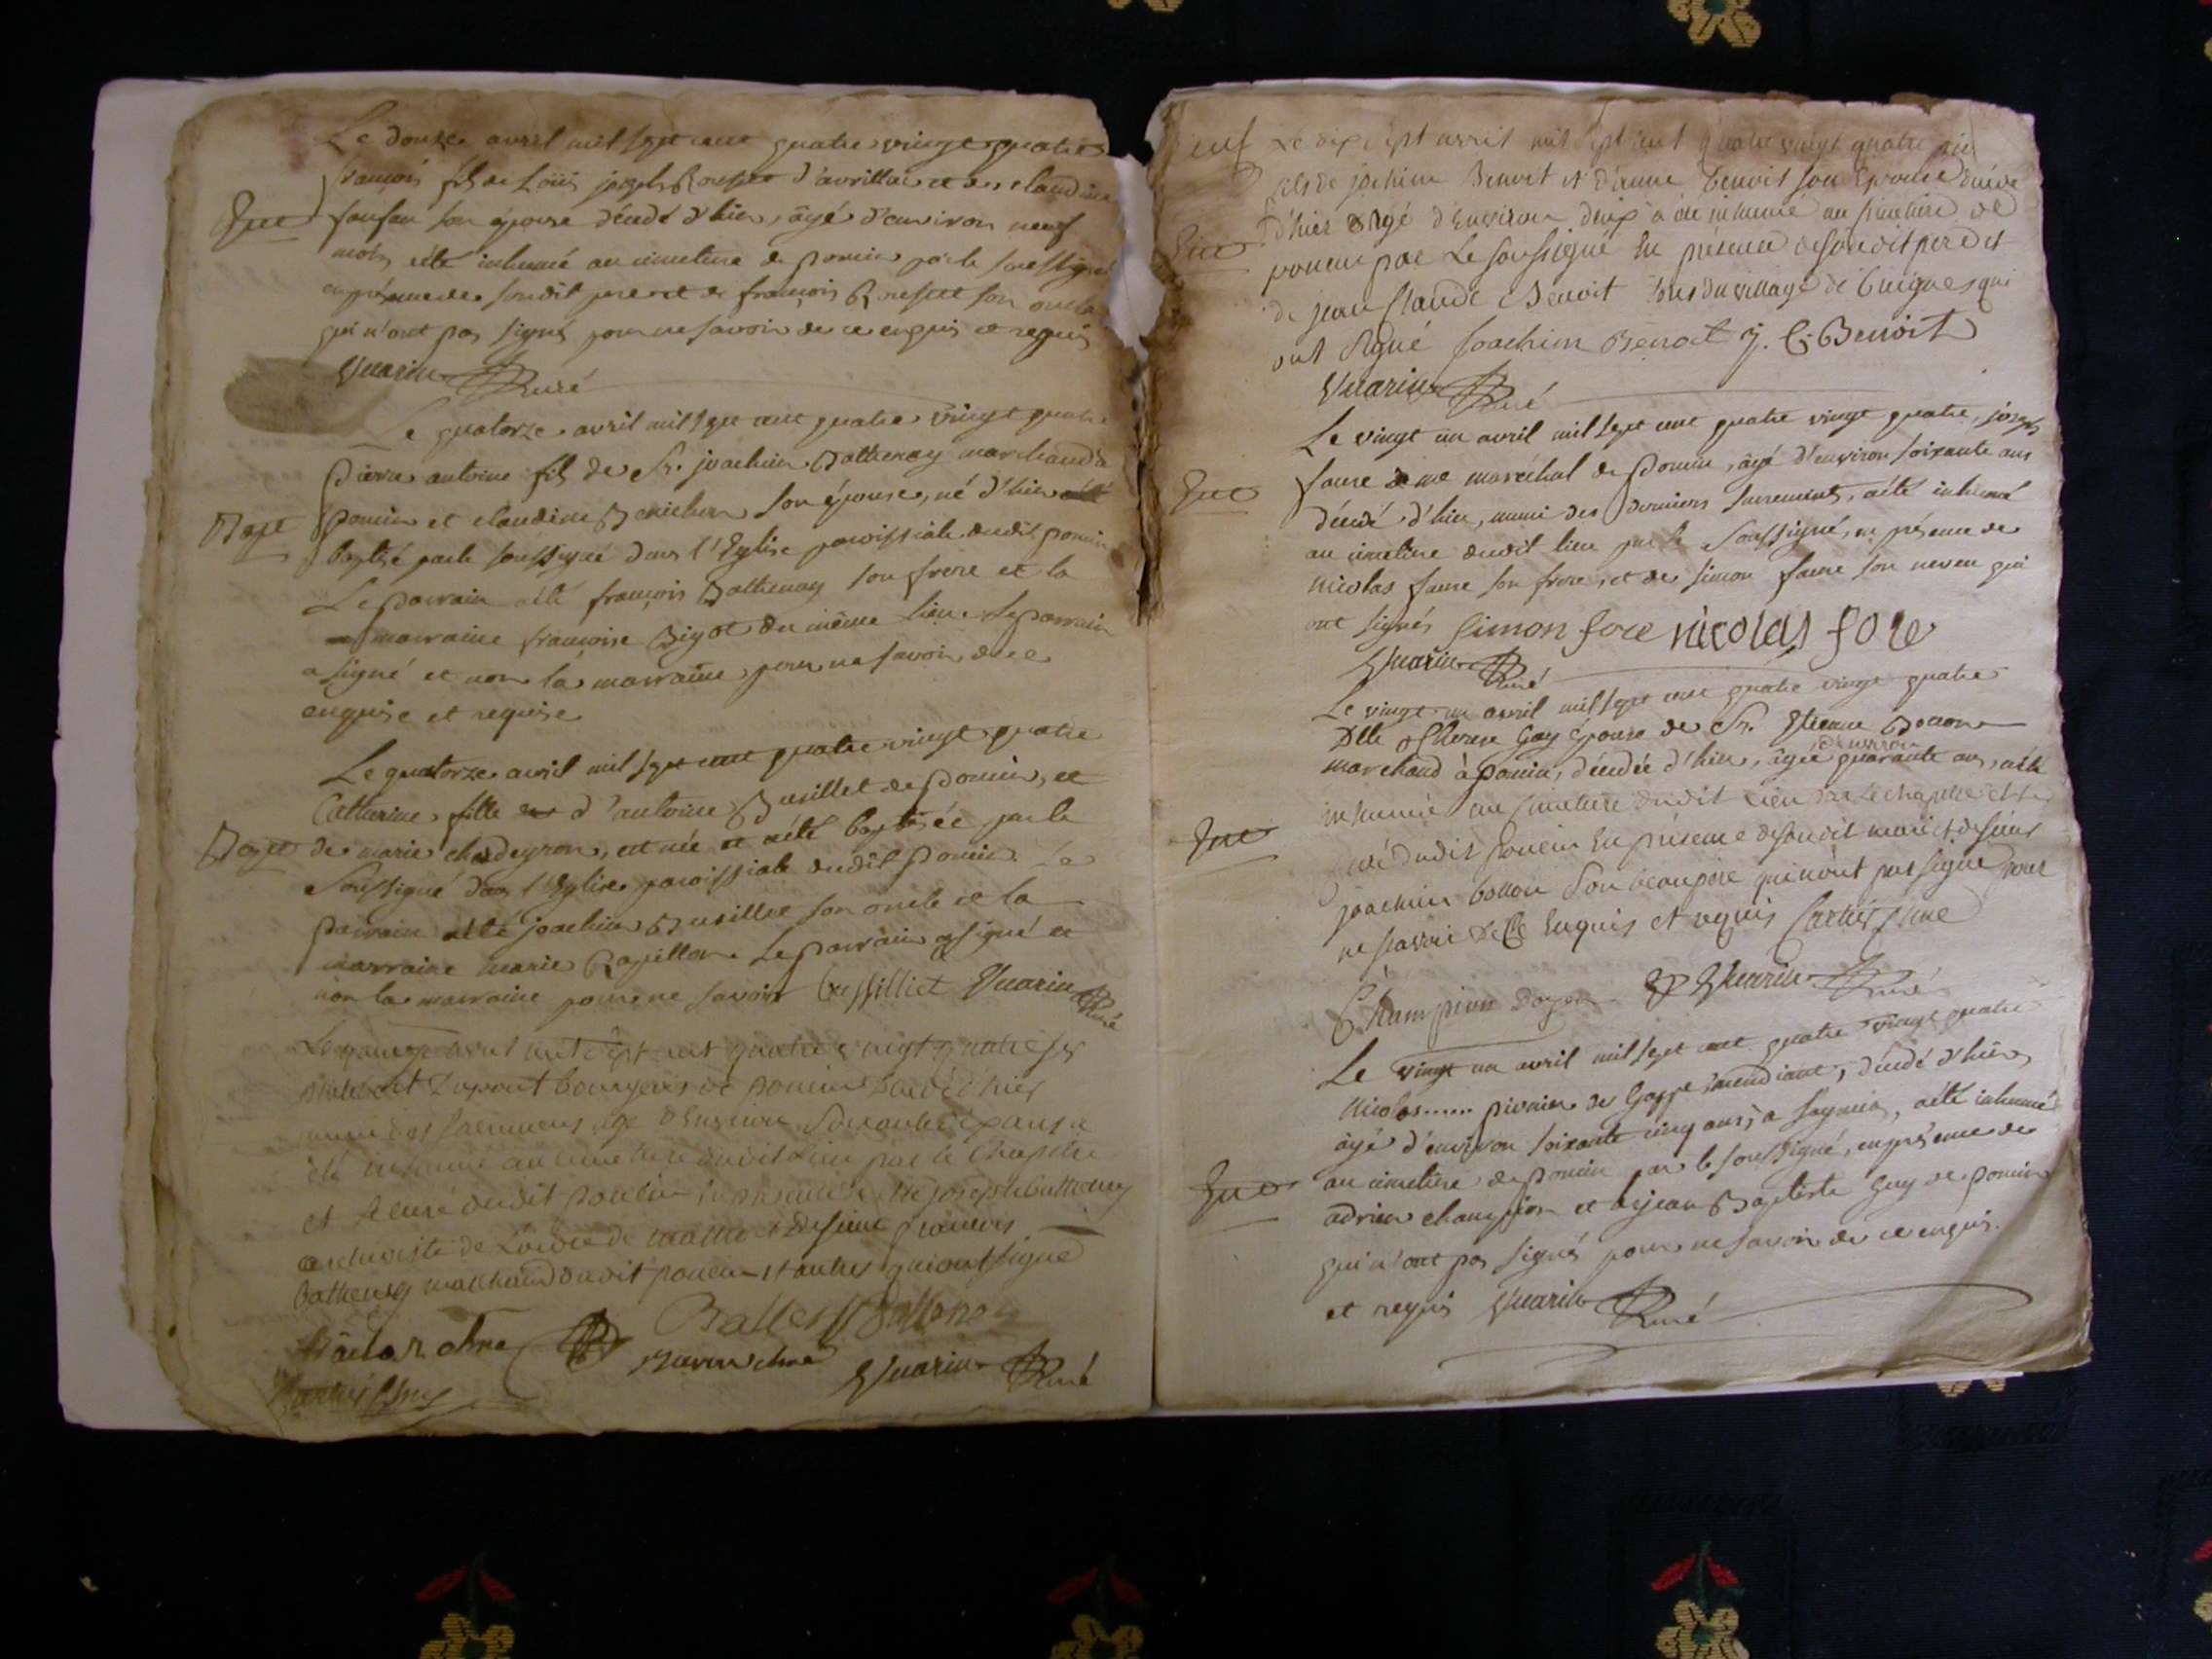 Le douze avril mil sept cent quatre vingt quatre
françois fils de Loüis joseph Rousset d'avrillac et de claudine
Inc
son épouse décédé d'hier, âgé d'environ neuf
mois, a été inhumé au cimetiere de poncin par le soussigné
en présence de son dit pere et de françois Rousset son oncle
qui n'ont pas signés pour ne savoir de ce enquis et requis
Guarin Curé
Le quatorze avril mil sept cent quatre vingt quatre
pierre antoine fils de Sr. joachim Bathenay marchand à
Bapt
poncin et claudine son épouse, né d'hier
baptisé par le soussigné dans l'Eglise paroissiale dudit poncin
Le parrain a été françois Bathenay son frere et la
marraine francoise Bigot du même lieu. Le parrain
a signé et non la marraine, pour ne savoir de ce
enquise et requise
Le quatorze avril mil sept cent quatre vingt quatre
Catherine, fille d'antoine Bussillet de poncin, et
Bapt
de marie chardeyron, est née et a été baptisée par le
soussigné dans l'Eglise paroissiale dudit poncin. Le
parrain a été joachim Bussillet son oncle et la
marraine marie Papillon. Le parrain a signé et
non la marraine pour ne savoir Bussilliet Guarin Curé
Le avril mil sept cent quatre vingt quatre Sr
Dupont bourgeois de poncin décédé d'hier
muni des sacremens agé d'Environ soixante dix ans a
été inhumé au cimetiere dudit Lieu par le Chapitre
et Le curé dudit poncin En présence de Me joseph bathenay
archiviste de L'ordre de malthe et de sieur francois
Bathenay marchand dudit poncin et autres qui ont signé
Bathenay
chne Guarin Curé
Le dix sept avril mil sept cent quatre vingt quatre
fils de joachim Benoit et d'anne Benoit son Epouse
Inc
d'hier agé d'Environ dix a été inhumé au cimetiere de
poncin par Le soussigné En présence de son dit pere et
de jean Claude Benoit tous du village de qui
ont signé Joachim Benoit J. C. Benoit
Guarin Curé
Le vingt un avril mil sept cent quatre vingt quatre, joseph
Inc
faure maréchal de poncin, âgé d'environ soixante ans
décédé d'hier, muni des derniers sacrements, a été inhumé
au cimetiere dudit lieu par le soussigné, en présence de
nicolas faure son frere, et de simon faure son neveu qui
ont signés Simon fore nicolas fore
Guarin Curé
Le vingt un avril mil sept cent quatre vingt quatre
Dlle Therese Gay épouse de Sr. Etienne Bolion
d'environ
marchand à poncin, décédée d'hier, âgée quarante ans, a été
inhumée au cimetiere dudit Lieu par Le chapitre et Le
Inc
curé dudit poncin En présence de son dit mari et de sieur
joachim bolion son beaupere qui n'ont pas signé pour
ne savoir de ce Enquis et requis
Champion Doyen Guarin Curé
Le vingt un avril mil sept cent quatre vingt quatre
nicolas...... de mendiant, décédé d'hier,
âgé d'environ soixante cinq ans, a été inhumé
Inc
au cimetiere de poncin par le soussigné, en présence de
adrien champion et de jean Baptiste Guy de poncin
qui n'ont pas signés pour ne savoir de ce enquis
et requis Guarin Curé